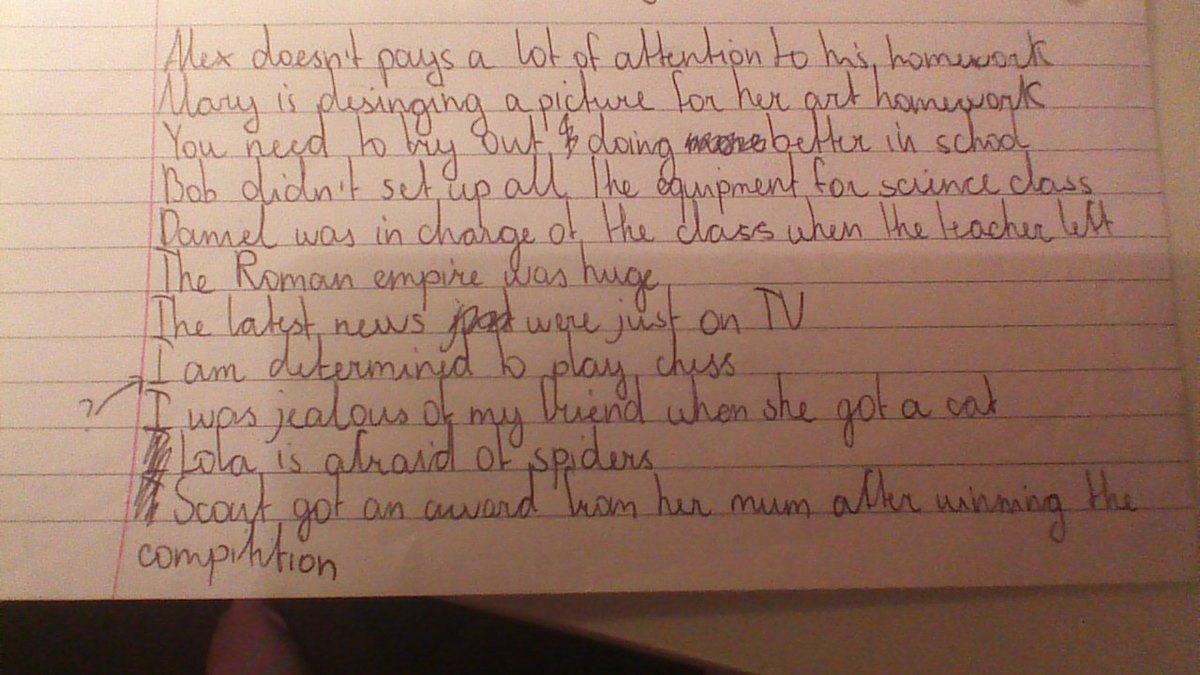 Alex doesn't pays a lot of attention to his homework
Mary is desinging a picture for her art homework
You need to try out & doing better in school
Bob didn't set up all the equipment for science class
Daniel was in charge of the class when the teacher left
The Roman empire was huge
The latest news were just on TV
I am determined to play chess
? I was jealous of my friend when she got a cat
Lola is afraid of spiders
Scout got an award from her mum after winning the
compitition